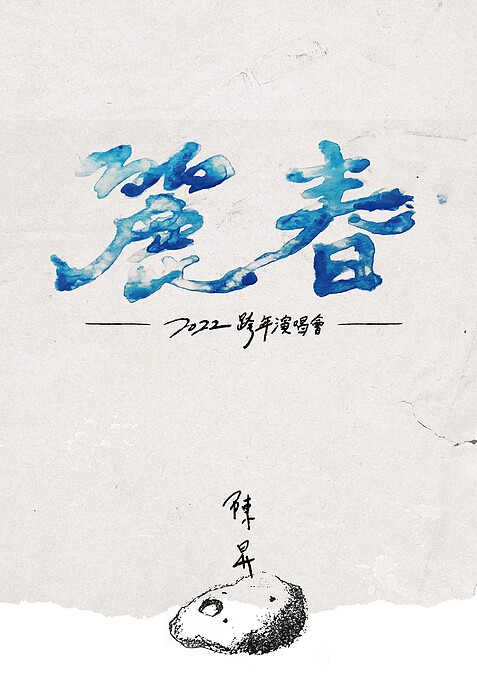 麗春
2022 跨年演唱會
陳
昇